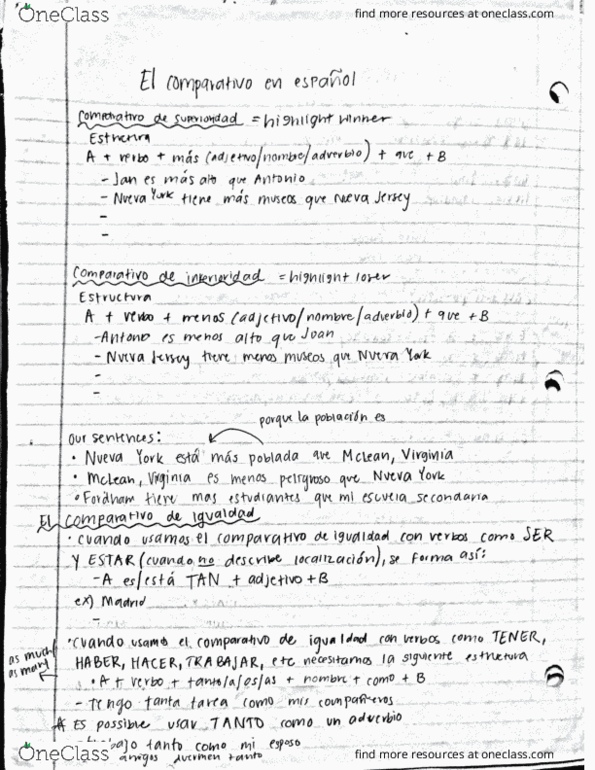 OneClass
find more resources at oneclass.com
El comparativo en español
Comparativo de superioridad = highlight winner
Estructura
A + verbo + más (adjetivo/nombre/adverbio) + que + B
- Jan es más alto que Antonio
- Nueva York tiene más museos que Nueva Jersey
-
-
Comparativo de inferioridad = highlight loser
Estructura
A + verbo + menos (adjetivo/nombre/adverbio) + que + B
- Antonio es menos alto que Joan
- Nueva Jersey tiene menos museos que Nueva York
-
-
porque la población es
Our sentences:
• Nueva York está más poblada que McLean, Virginia
• McLean, Virginia es menos peligroso que Nueva York
• Fordham tiene mas estudiantes que mi escuela secundaria
El comparativo de igualdad
• Cuando usamos el comparativo de igualdad con verbos como SER
Y ESTAR (cuando no describe localización), se forma así:
- A es/está TAN + adjetivo + B
ex) Madrid
-
• Cuando usamos el comparativo de igualdad con verbos como TENER,
as much
as many
HABER, HACER, TRABAJAR, etc necesitamos la siguiente estructura
• A + verbo + tanto/a/os/as + nombre + como + B
- Tengo tanta tarea como mis compañeros
* Es possible usar TANTO como un adverbio
tanto como mi esposo
amigos duermen tanto
OneClass
find more resources at oneclass.com